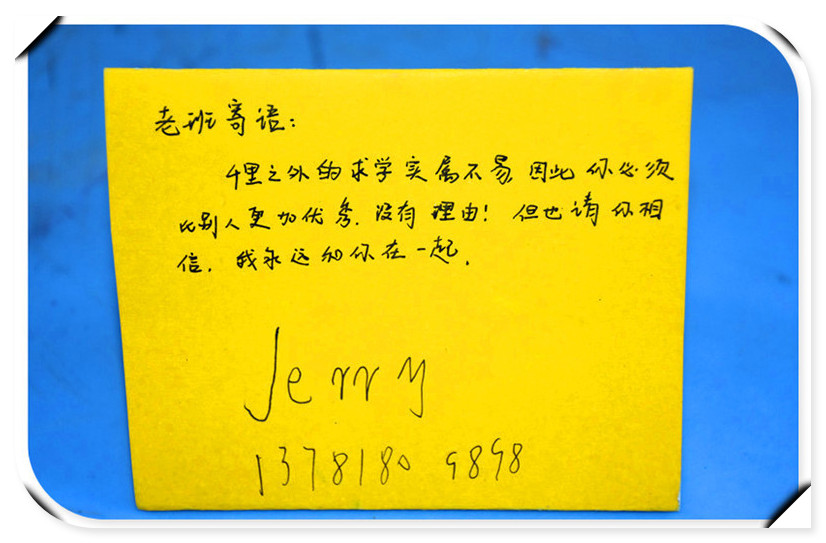 老班寄语：
千里之外的求学实属不易，因此你必须
比别人更加优秀，没有理由！但也请你相
信，我永远和你在一起。
Jerry
1378180 9898